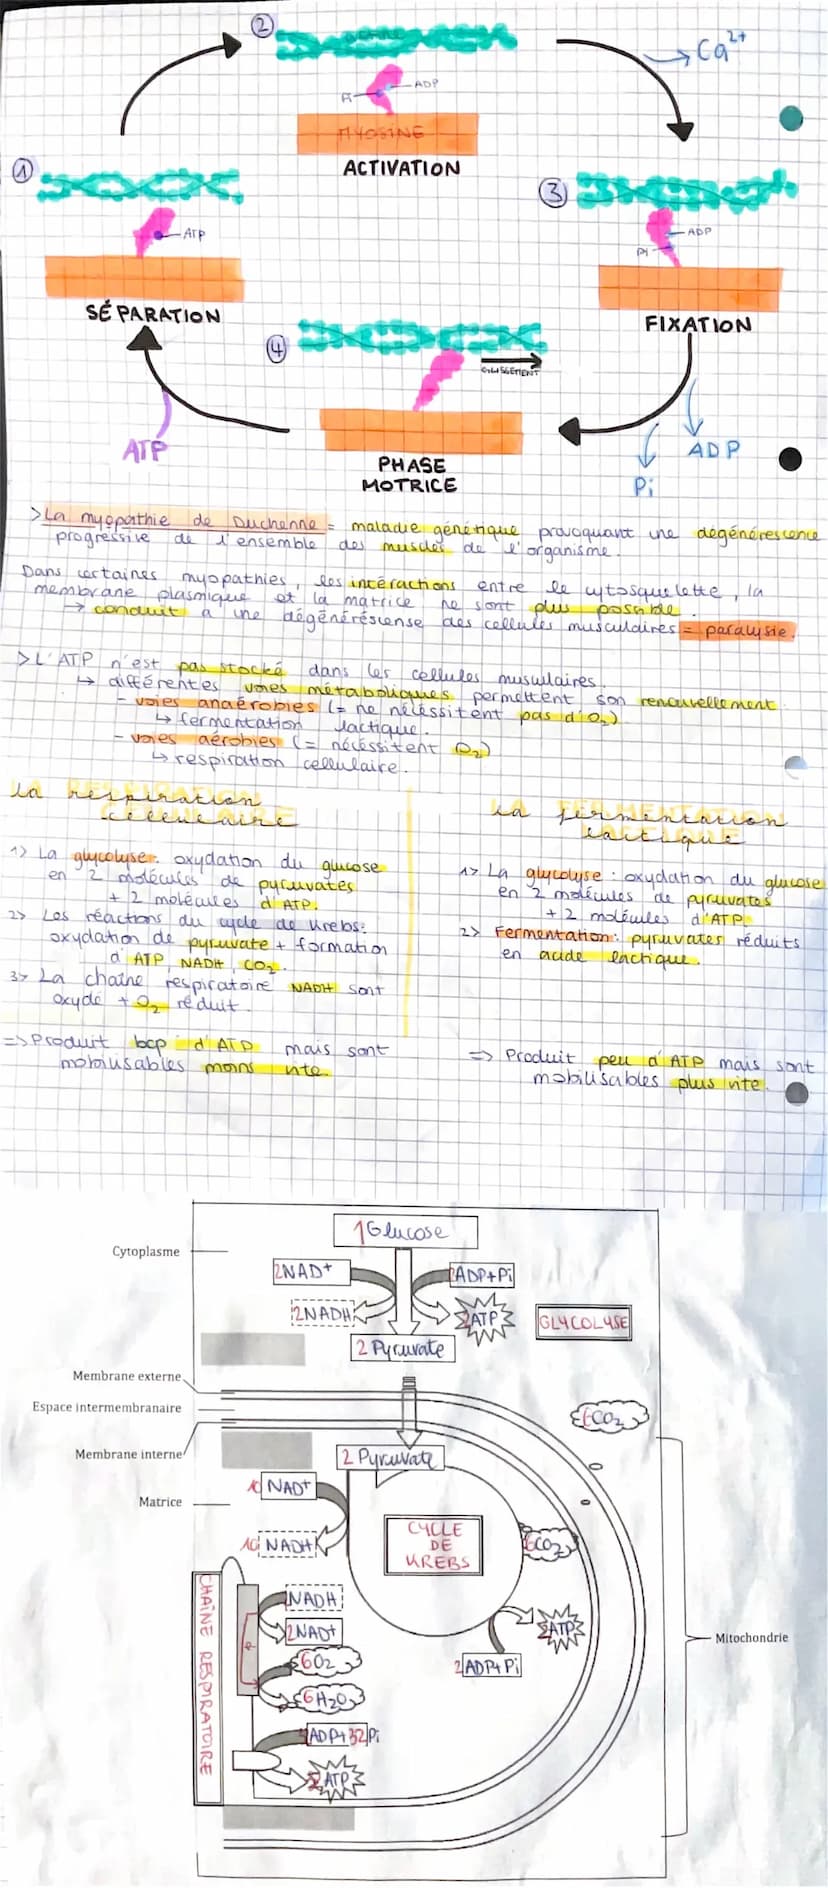 ②
→ Ca²⁺
ADP
MYOSINE
ACTIVATION
①
ATP
SÉPARATION
③
ADP
Pi
FIXATION
④
GLISSEMENT
PHASE
MOTRICE
ATP
ADP
Pi
>La myopathie de Duchenne = maladie génétique provoquant une dégénérescence
progressive de l'ensemble des muscles de l'organisme.
Dans certaines myopathies, les intéractions entre le cytosquelette, la
membrane plasmique et la matrice ne sont plus possible.
→ conduit a une dégénérescense des cellules musculaires = paralysie.
> L'ATP n'est pas stocké dans les cellules musculaires.
↳ différentes voies métaboliques permettent son renouvellement.
- voies anaérobies (= ne nécéssitent pas d'O₂)
↳ fermentation lactique.
- voies aérobies (= nécéssitent O₂)
↳ respiration cellulaire.
La respiration
cellulaire
1> La glycolyse: oxydation du glucose
en 2 molécules de pyruvates
+ 2 molécules d'ATP.
2> Les réactions du cycle de Krebs:
oxydation de pyruvate + formation
d'ATP, NADH, CO₂.
3> La chaîne respiratoire NADH sont
oxydé + O₂ réduit.
=> Produit bcp d'ATP mais sont
mobilisables moins vite
La fermentation
lactique
1> La glycolyse : oxydation du glucose
en 2 molécules de pyruvates
+ 2 molécules d'ATP
2> Fermentation: pyruvates réduits
en acide lactique.
=> Produit peu d'ATP mais sont
mobilisables plus vite.
1 Glucose
Cytoplasme
2NAD⁺
2ADP+Pi
2NADH
2ATP
GLYCOLYSE
2 Pyruvate
Membrane externe
Espace intermembranaire
6CO₂
Membrane interne
2 Pyruvate
10 NAD⁺
Matrice
10 NADH
CYCLE
DE
KREBS
6CO₂
CHAÎNE RESPIRATOIRE
NADH
12NAD⁺
e⁻
6O₂
6H₂O
2ATP
Mitochondrie
2ADP+Pi
ADP+32Pi
ATP